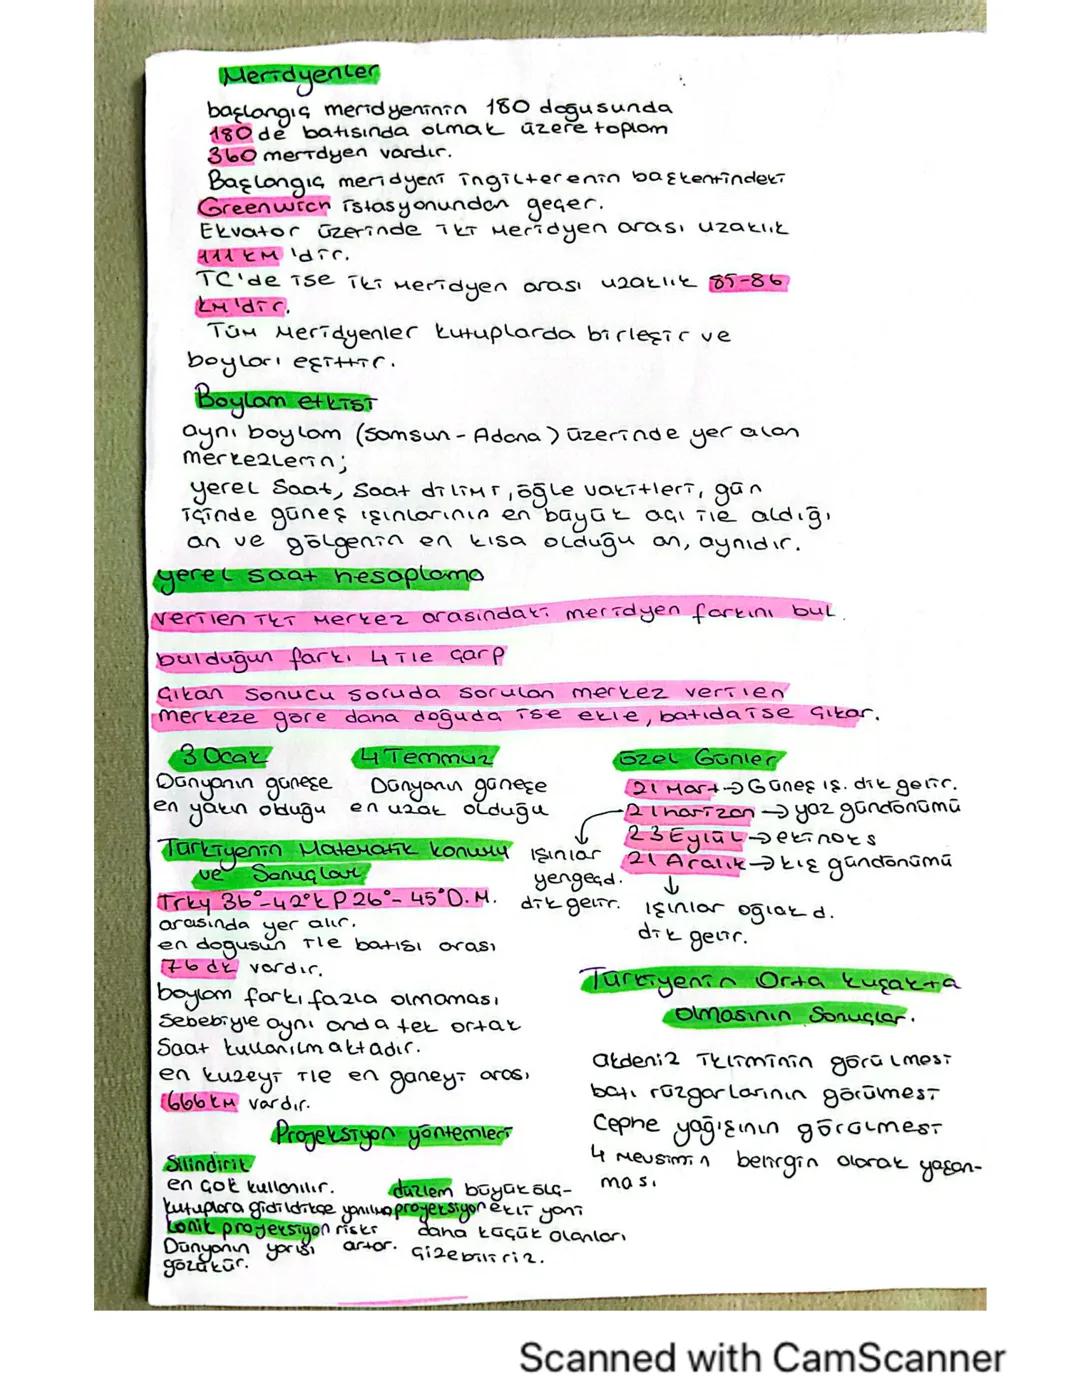 Meridyenler
başlangıç meridyeninin 180 doğusunda
180 de batısında olmak üzere toplam
360 meridyen vardır.
Başlangıç meridyeni ingilterenin başkentindeki
Greenwich istasyonundan geçer.
Ekvator üzerinde iki meridyen arası uzaklık
111 km 'dir.
TC'de ise iki meridyen arası uzaklık 85-86
km'dir.
Tüm meridyenler kutuplarda birleşir ve
boyları eşittir.
Boylam etkisi
aynı boylam (Samsun - Adana) üzerinde yer alan
merkezlerin;
yerel saat, saat dilimi, öğle vakitleri, gün
içinde güneş ışınlarının en büyük açı ile aldığı
an ve gölgenin en kısa olduğu an, aynıdır.
yerel saat hesaplama
verilen iki merkez arasındaki meridyen farkını bul.
bulduğun farkı 4 ile çarp
Çıkan sonucu soruda sorulan merkez verilen
merkeze göre daha doğuda ise ekle, batıda ise çıkar.
3 Ocak
Dünyanın güneşe
en yakın olduğu
4 Temmuz
Dünyanın güneşe
en uzak olduğu
Özel Günler
21 Mart → Güneş ış. dik gelir.
21 haziran → yaz gündönümü
23 Eylül → ekinoks
21 Aralık → kış gündönümü
ışınlar
yengeçd.
dik gelir.
ışınlar oğlak d.
dik gelir.
Türkiyenin Matematik konumu
ve Sonuçlar
Trky 36°-42°k P 26°- 45°D.M.
arasında yer alır.
en doğusun ile batısı arası
76 dk vardır.
boylam farkı fazla olmaması
sebebiyle aynı anda tek ortak
saat kullanılmaktadır.
en kuzeyi ile en güneyi arası
666 km vardır.
Türkiyenin Orta kuşakta
olmasının Sonuçlar.
akdeniz ikliminin görülmesi
batı rüzgarlarının görülmesi
Cephe yağışının görülmesi
4 mevsimin belirgin olarak yaşan-
ması
Projeksiyon yöntemleri
Silindirik
en çok kullanılır.
kutuplara gidildikçe
konik projeksiyon riski
Dünyanın yarısı artar.
gözükür.
düzlem büyük ölç-
projeksiyon ekli yani
daha küçük olanları
çizebiliriz.
Scanned with CamScanner